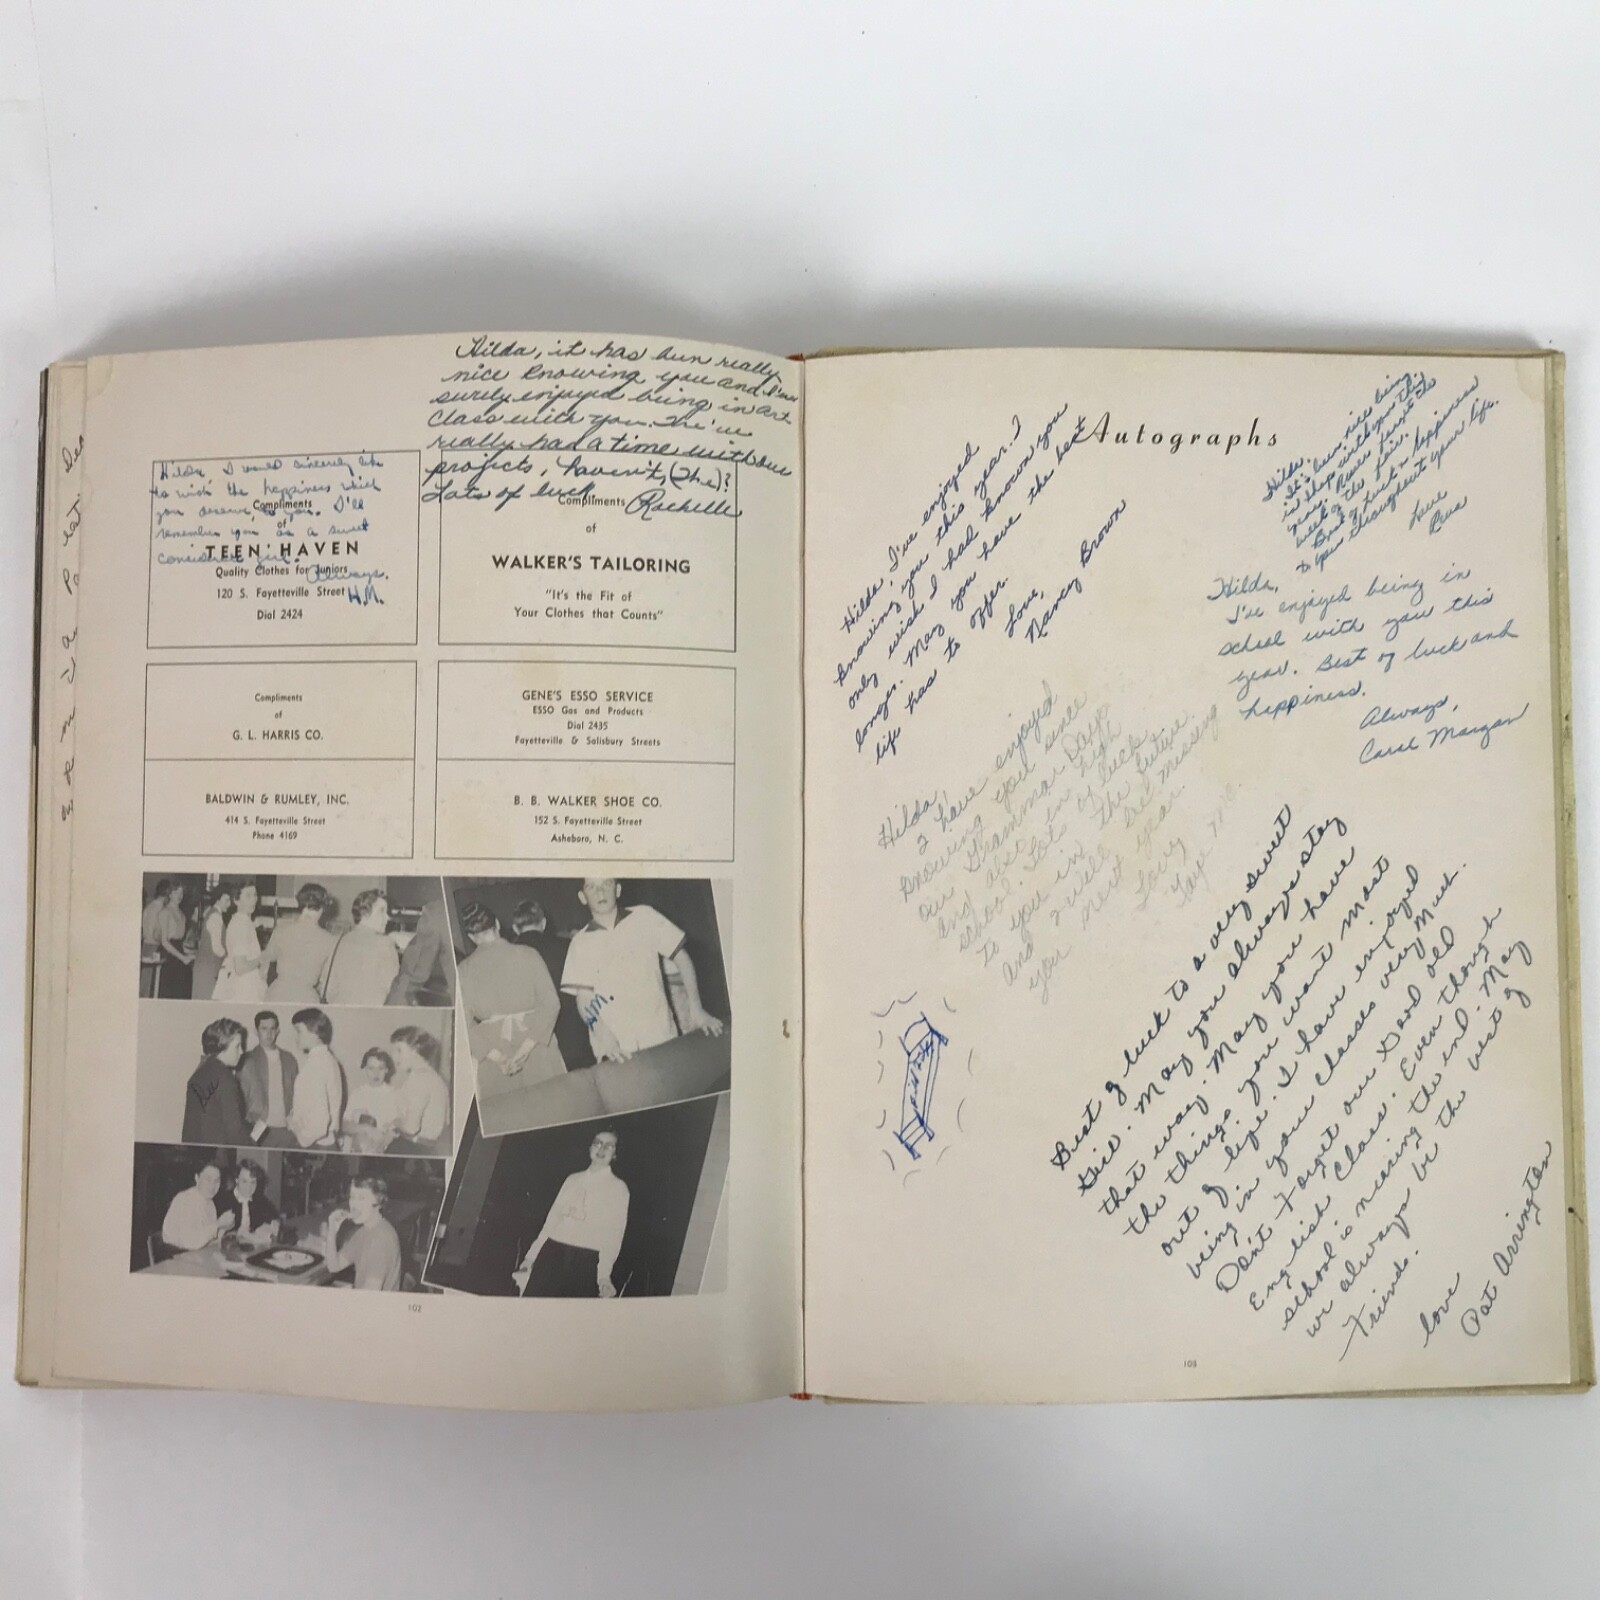 Hilda, it has bun really
nice knowing you and I've
surely enjoyed being in art
class with you. We've
really had a time with our
projects, haven't, (We)?
Lots of luck
Rochelle
Hilda, I would sincerely like
to wish the happiness which
you deserve to you. I'll
remember you as a sweet
considerate girl.
Always,
H.M.
Compliments
of
TEEN HAVEN
Quality Clothes for Juniors
120 S. Fayetteville Street
Dial 2424
Compliments
of
WALKER'S TAILORING
"It's the Fit of
Your Clothes that Counts"
Compliments
of
G. L. HARRIS CO.
GENE'S ESSO SERVICE
ESSO Gas and Products
Dial 2435
Fayetteville & Salisbury Streets
BALDWIN & RUMLEY, INC.
414 S. Fayetteville Street
Phone 4169
B. B. WALKER SHOE CO.
152 S. Fayetteville Street
Asheboro, N. C.
H.M.
102
Autographs
Hilda, I've enjoyed
knowing you this year. I
only wish I had known you
longer. May you have the best
life has to offer.
Love,
Nancy Brown
Hilda,
It's been nice being
in shop with you this
year. Never forget the
week of the fair.
Best of luck & happiness
to you throughout your life.
Love
Hilda,
I've enjoyed being in
school with you this
year. Best of luck and
happiness.
Always,
Carol Morgan
Hilda,
I have enjoyed
knowing you since
our Grammar Days
and also in high
school. Lots of luck
to you in the future
and I will be missing
you next year.
Love,
Faye Mc.
Best of luck to a very sweet
girl. May you always stay
that way. May you have
the things you want most
out of life. I have enjoyed
being in your classes very much.
Don't forget our Good old
English Class. Even though
school is nearing the end. May
we always be the best of
Friends.
love
Pat Arrington
103